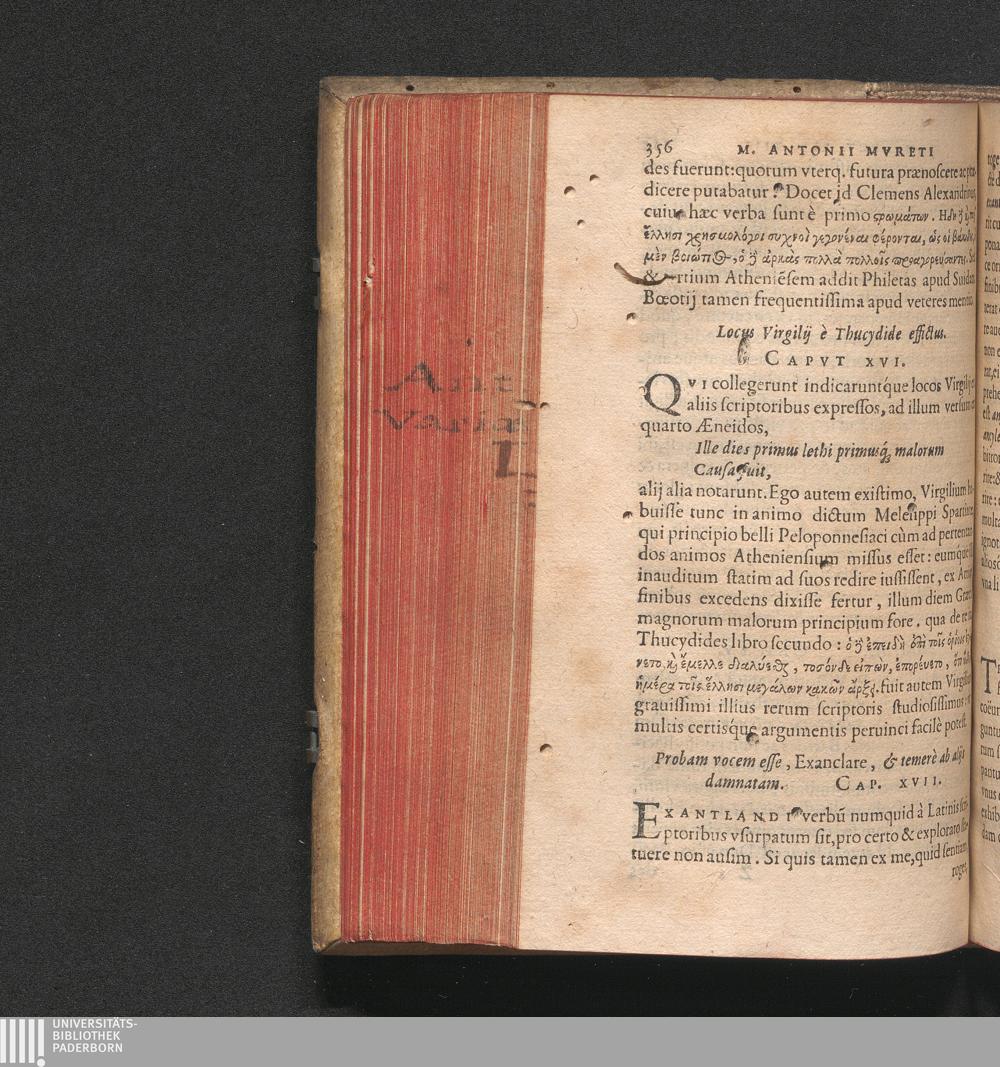 356 M. ANTONII MVRETI
des fuerunt: quorum vterq. futura prænoscere ac
dicere putabatur. Docet id Clemens
cuius hæc verba sunt è primo ςρωμάτων.
ἕλλησι χρησμολόγοι συχνοὶ γεγονέναι φέρονται, ὡς οἱ
μὲν βοιώτιος, ὁ δὲ ἀρκὰς πολλὰ πολλοῖς
& tertium Atheniēsem addit Philetas apud
Bœotij tamen frequentissima apud veteres
Locus Virgilij è Thucydide effictus.
CAPVT XVI.
QVI collegerunt indicaruntq́ue locos
aliis scriptoribus expressos, ad illum
quarto Æneidos,
Ille dies primus lethi primusq́; malorum
Causa fuit,
alij alia notarunt. Ego autem existimo, Virgilium
buisse tunc in animo dictum Melesippi
qui principio belli Peloponnesiaci cùm ad
dos animos Atheniensium missus esset: eumq́ue
inauditum statim ad suos redire iussissent, ex
finibus excedens dixisse fertur, illum diem
magnorum malorum principium fore. qua de re
Thucydides libro secundo: ὁ δ' ἐπειδὴ ἐπὶ τοῖς
νετο, καὶ ἔμελλε διαλύεσθαι, τοσόνδε εἰπὼν, ἐπορεύετο,
ἡμέρα τοῖς ἕλλησι μεγάλων κακῶν ἄρξει. fuit autem
grauissimi illius rerum scriptoris studiosissimus:
multis certisq́ue argumentis peruinci facilè potest.
Probam vocem esse, Exanclare, & temerè ab alijs
damnatam. CAP. XVII.
EXANTLANDI verbū numquid à Latinis
ptoribus vsurpatum sit, pro certo & explorato
tuere non ausim. Si quis tamen ex me, quid sentiam,
roget,
Ant
Variæ
L
UNIVERSITÄTS-
BIBLIOTHEK
PADERBORN